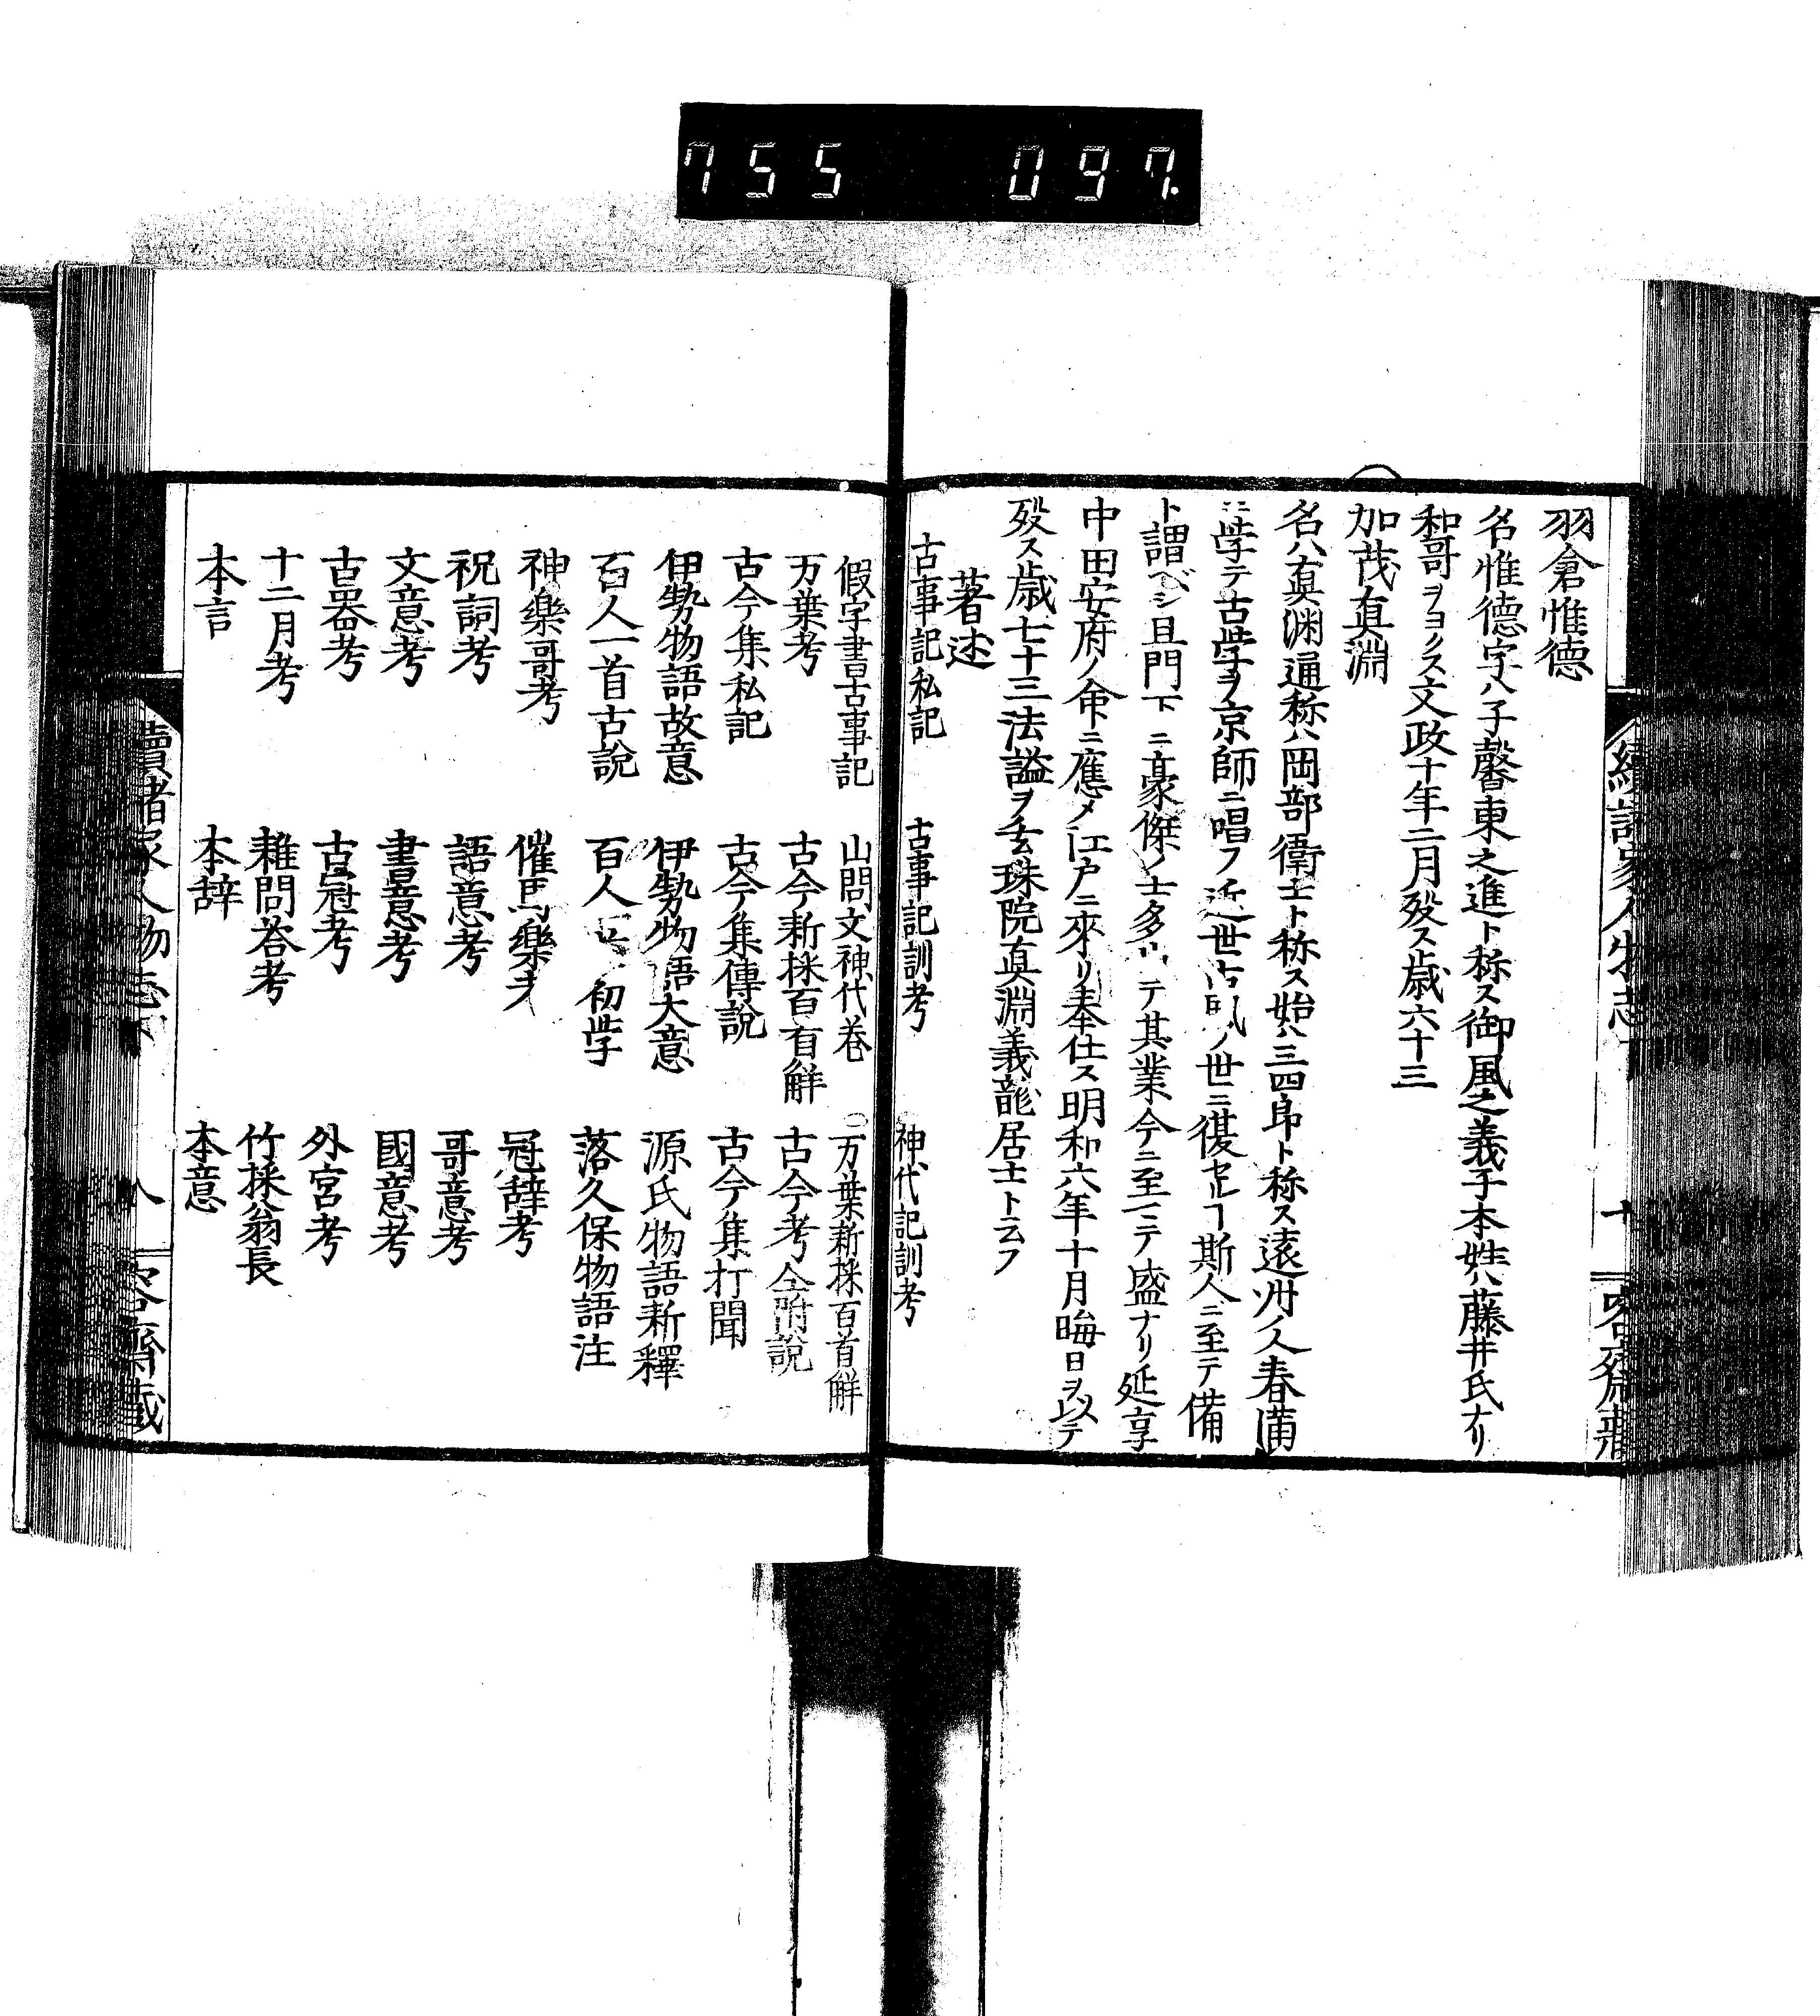 755 097
羽倉惟德
名惟德字ハ子馨東之進ト称ス御風之義子本姓ハ藤井氏ナリ
和哥ヲヨクス文政十年二月殁ス歳六十三
加茂真淵
名ハ真渊通称ハ岡部衛士ト称ス始ハ三四郎ト称ス遠州ノ人春満
ニ学テ古学ヲ京師ニ唱フ近世古風ノ世ニ復セルヿ斯人ニ至テ備
ト謂ベシ且門下ニ豪傑ノ士多シテ其業今ニ至テ盛ナリ延享
中田安府ノ命ニ應メ江戸ニ來リ奉仕ス明和六年十月晦日ヲ以テ
殁ス歳七十三法謚ヲ玄珠院真淵義龍居士ト云フ
著述
古事記私記 古事記訓考 神代記訓考
假字書古事記 山問文神代巻 万葉新採百首解
万葉考 古今新採百有解 古今考全附說
古今集私記 古今集傳說 古今集打聞
伊勢物語故意 伊勢物語大意 源氏物語新釋
百人一首古說 百人一首初学 落久保物語注
神樂哥考 催馬樂考 冠辞考
祝詞考 語意考 哥意考
文意考 書意考 國意考
古器考 古冠考 外宮考
十二月考 雜問答考 竹採翁長
本言 本辞 本意
續諸家人物志